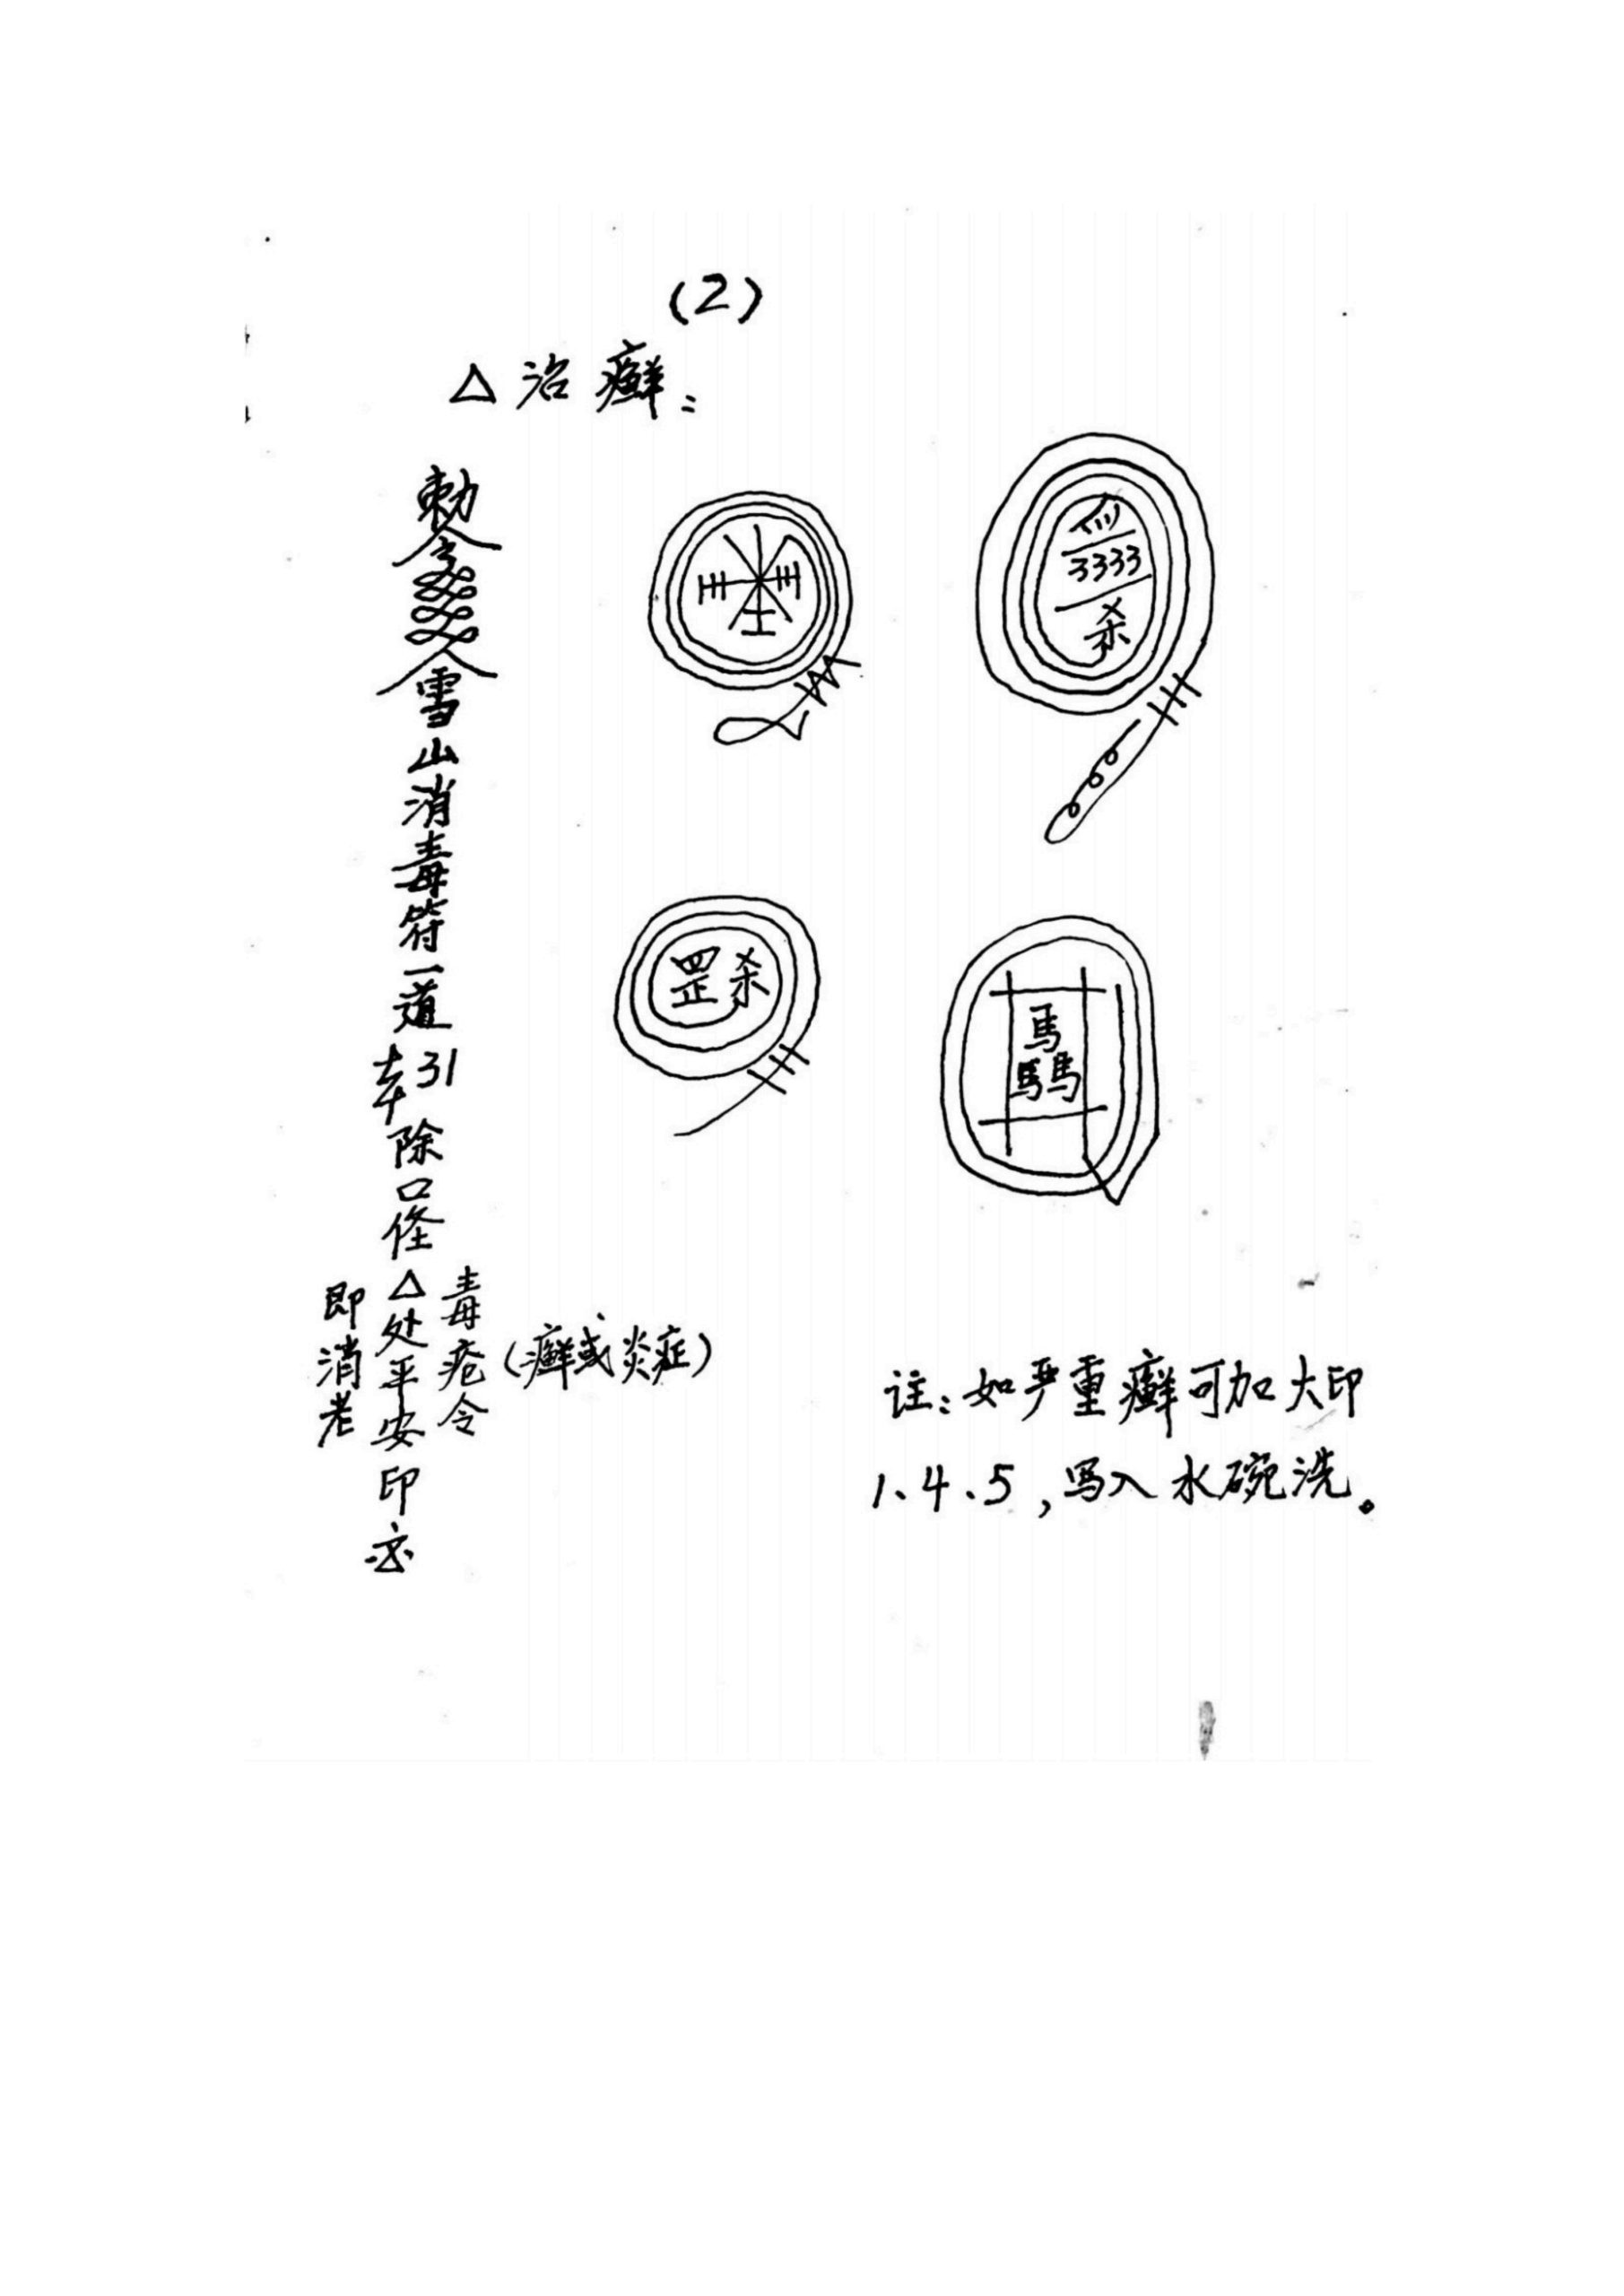 (2)
△治癣:
勅令
雪山消毒符一道
牵引
除口怪
毒疮令
△处平安印
即消老
(癣或炎症)
3333
杀
罡杀
馬
馬馬
註:如严重癣可加大印
1、4、5,写入水碗洗。